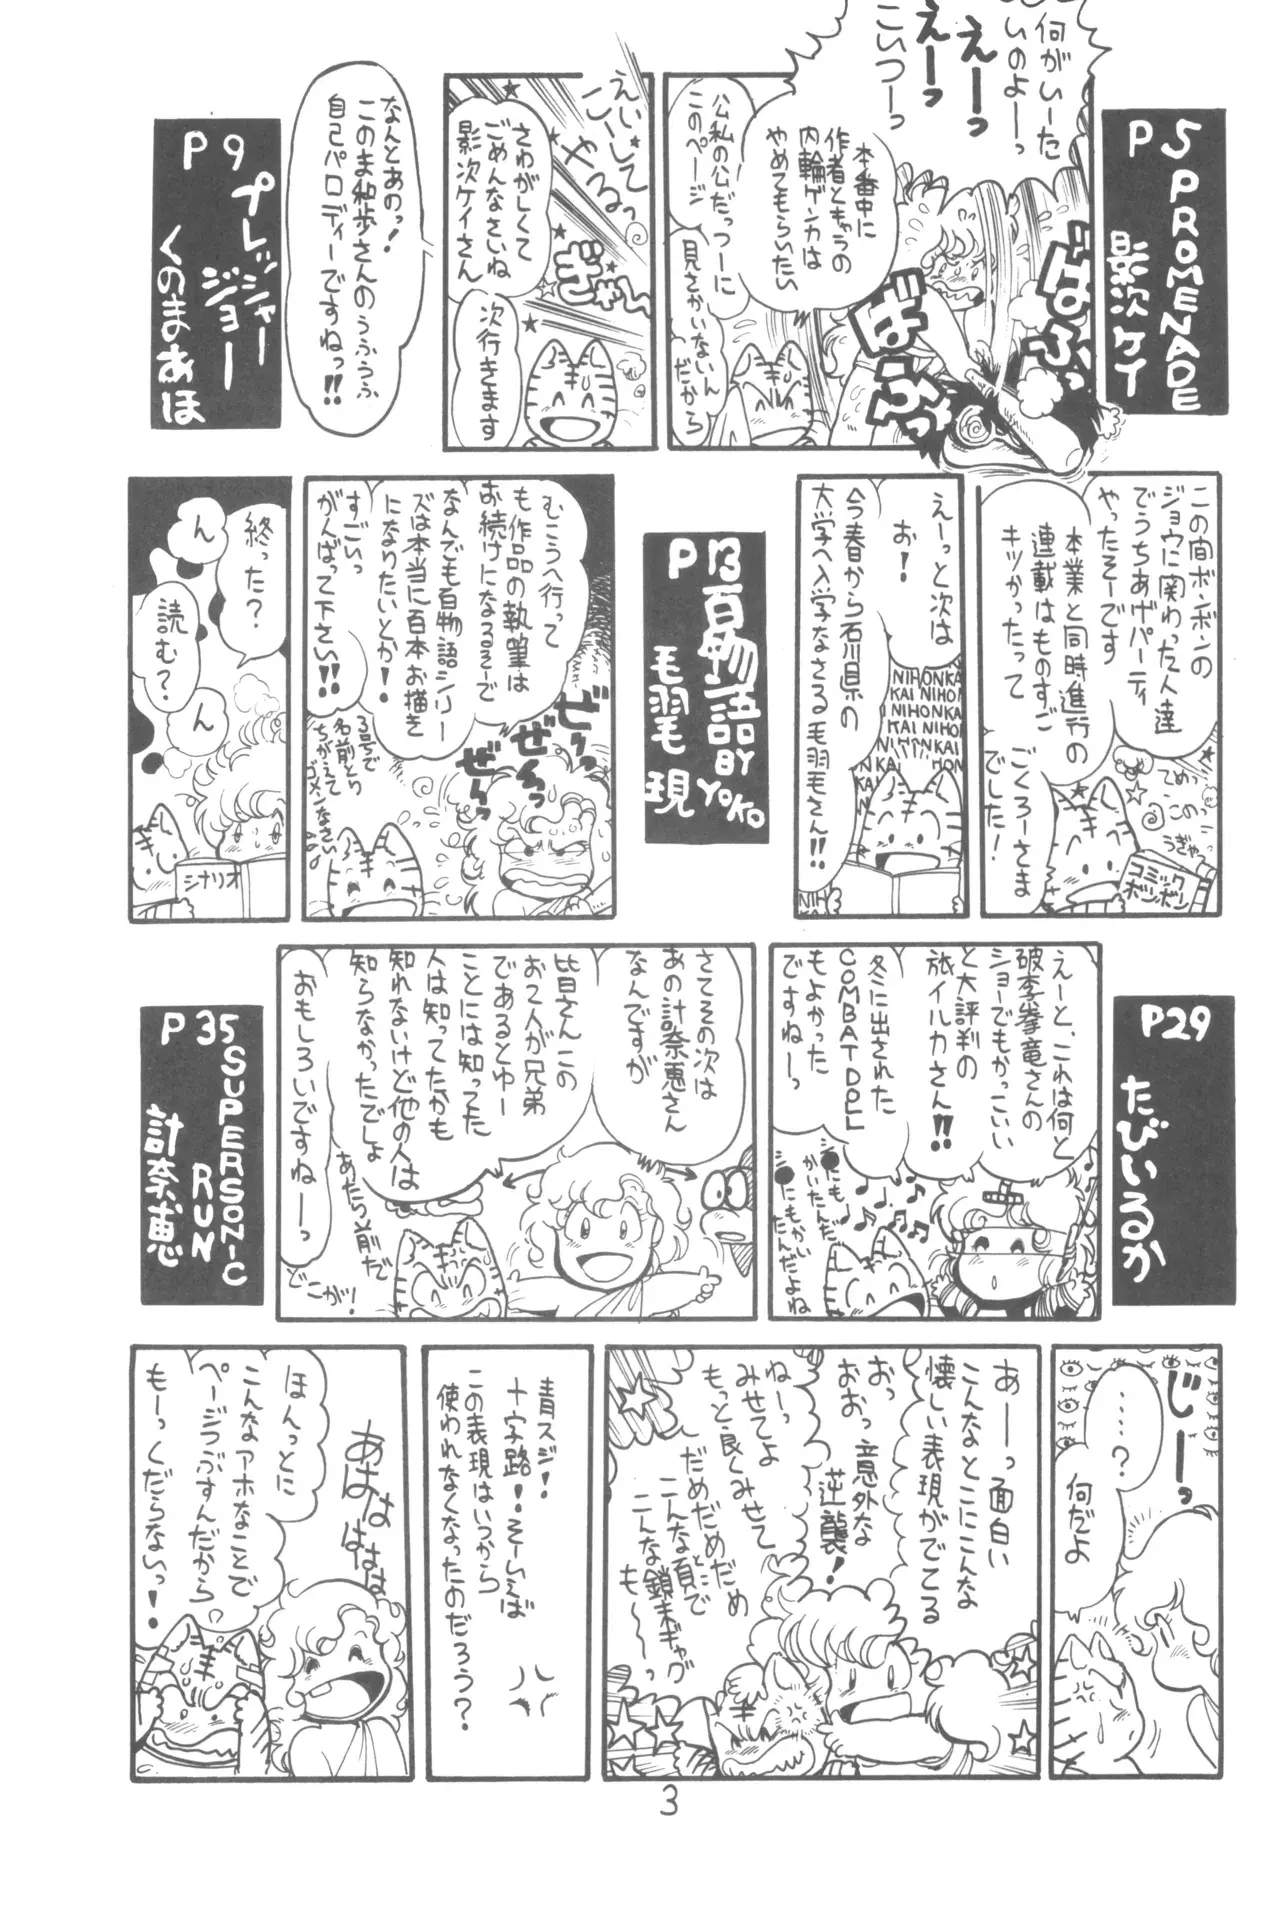 P5 PROMENADE
影次ケイ
何がいーた
いのよーっ
えーっ
えーっ
こいつーっ
本番中に
作者どもの
内輪ゲンカは
やめてもらいたい
公私の公だっつーに
このページ
見てかいないん
だから
ばふっ
ばふっ
えいしてこーして
やるっ
ぎゃ〜
さわがしくて
ごめんなさいね
影次ケイさん
次行きます
なんとあの!
このま和歩さんのうふふふ
自己パロディーですねっ!!
P9
プレッシャー
ジョー
くのまあほ
この間ボンボンの
ジョウに関わった人達
でうちあげパーティ
やったそーです
本業と同時進行の
連載はものすご
キツかったって
ごくろーさま
でした!
てめっ
この
うぎゃっ
コミック
ボンボン
えーっと次は
お!
今春から石川県の
大学へ入学なさる毛羽毛さん!!
NIHONKAI
P13
百物語
BY YOKO
毛羽毛現
むこうへ行って
も作品の執筆は
お続けになるそーで
なんでも百物語シリー
ズは本当に百本お描き
になりたいとか!
すごいっ
がんばって下さい!!
ぜいっ
ぜいっ
ぜいっ
3号で
名前とり
ちがえて
ゴメンなさい
終った?
ん
読む?
ん
シナリオ
P29
たびいるか
えーと、これは何と
破李拳竜さんの
ショーでもかっこいい
と大評判の
旅イルカさん!!
冬に出された
COMBAT DOLL
もよかった
ですねーっ
●にも
かいたんだ
●にもかい
たんだよね
さてその次は
あの計奈恵さん
なんですが
皆さんこの
お2人が兄弟
であるとゆー
ことには知ってた
人は知ってたかも
知れないけど他の人は
知らなかったでしょ
おもしろいですねーっ
あたら前だ
どこが!
P35
SUPERSONIC
RUN
計奈恵
じーっ
……?
何だよ
あーっ面白い
こんなとこにこんな
懐しい表現がでてる
おっ
おおっ意外な
逆襲!
ねーっ
みせてよ
もっと良くみせて
だめだめだめ
こんな頁で
こんな鎖末ギャグ
も〜〜っ
青スジ!
十字路!・そーいえば
この表現はいつから
使われなくなったのだろう?
あははははは
ほんっとに
こんなアホなことで
ページつぶすんだから
もーっくだらないっ!
3